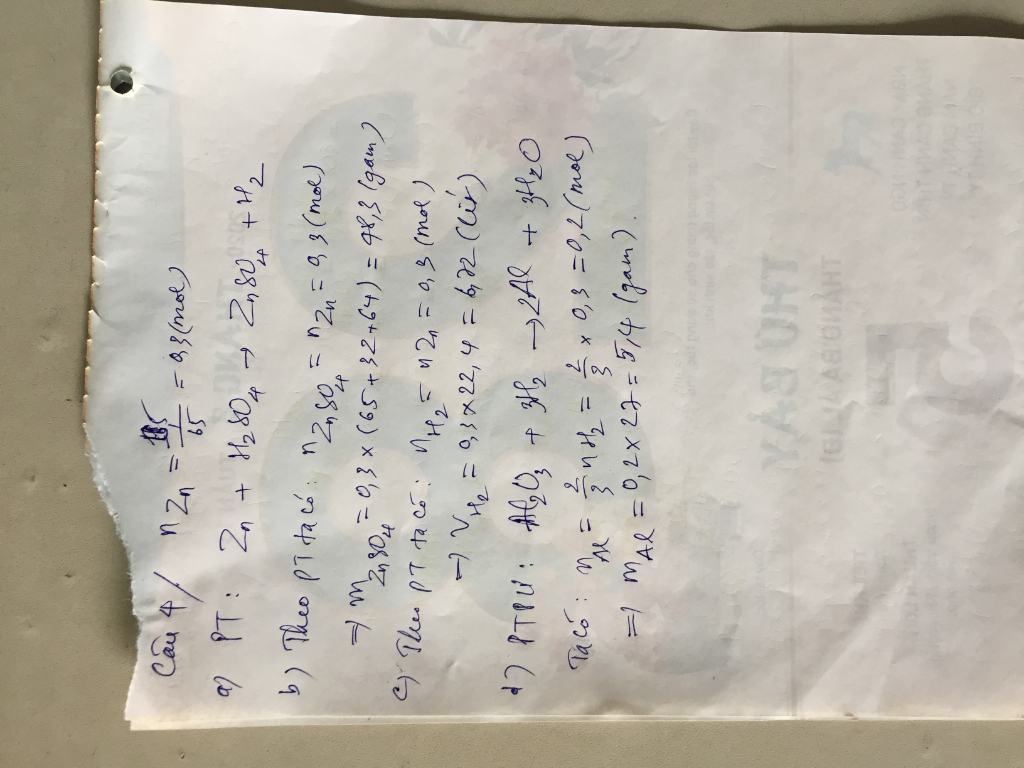 Câu 4/ nZn = /65 = 0,3 (mol)
a) PT: Zn + H2SO4 → ZnSO4 + H2
b) Theo PT ta có: nZnSO4 = nZn = 0,3 (mol)
=) mZnSO4 = 0,3 x (65+32+64) = 48,3 (gam)
c) Theo PT ta có: nH2 = nZn = 0,3 (mol)
=) VH2 = 0,3 x 22,4 = 6,72 (lít)
d) PTPƯ: Al2O3 + 3H2 → 2Al + 3H2O
Ta có: nAl = 2/3 nH2 = 2/3 x 0,3 = 0,2 (mol)
=) mAl = 0,2 x 27 = 5,4 (gam).
THỨ BẢY